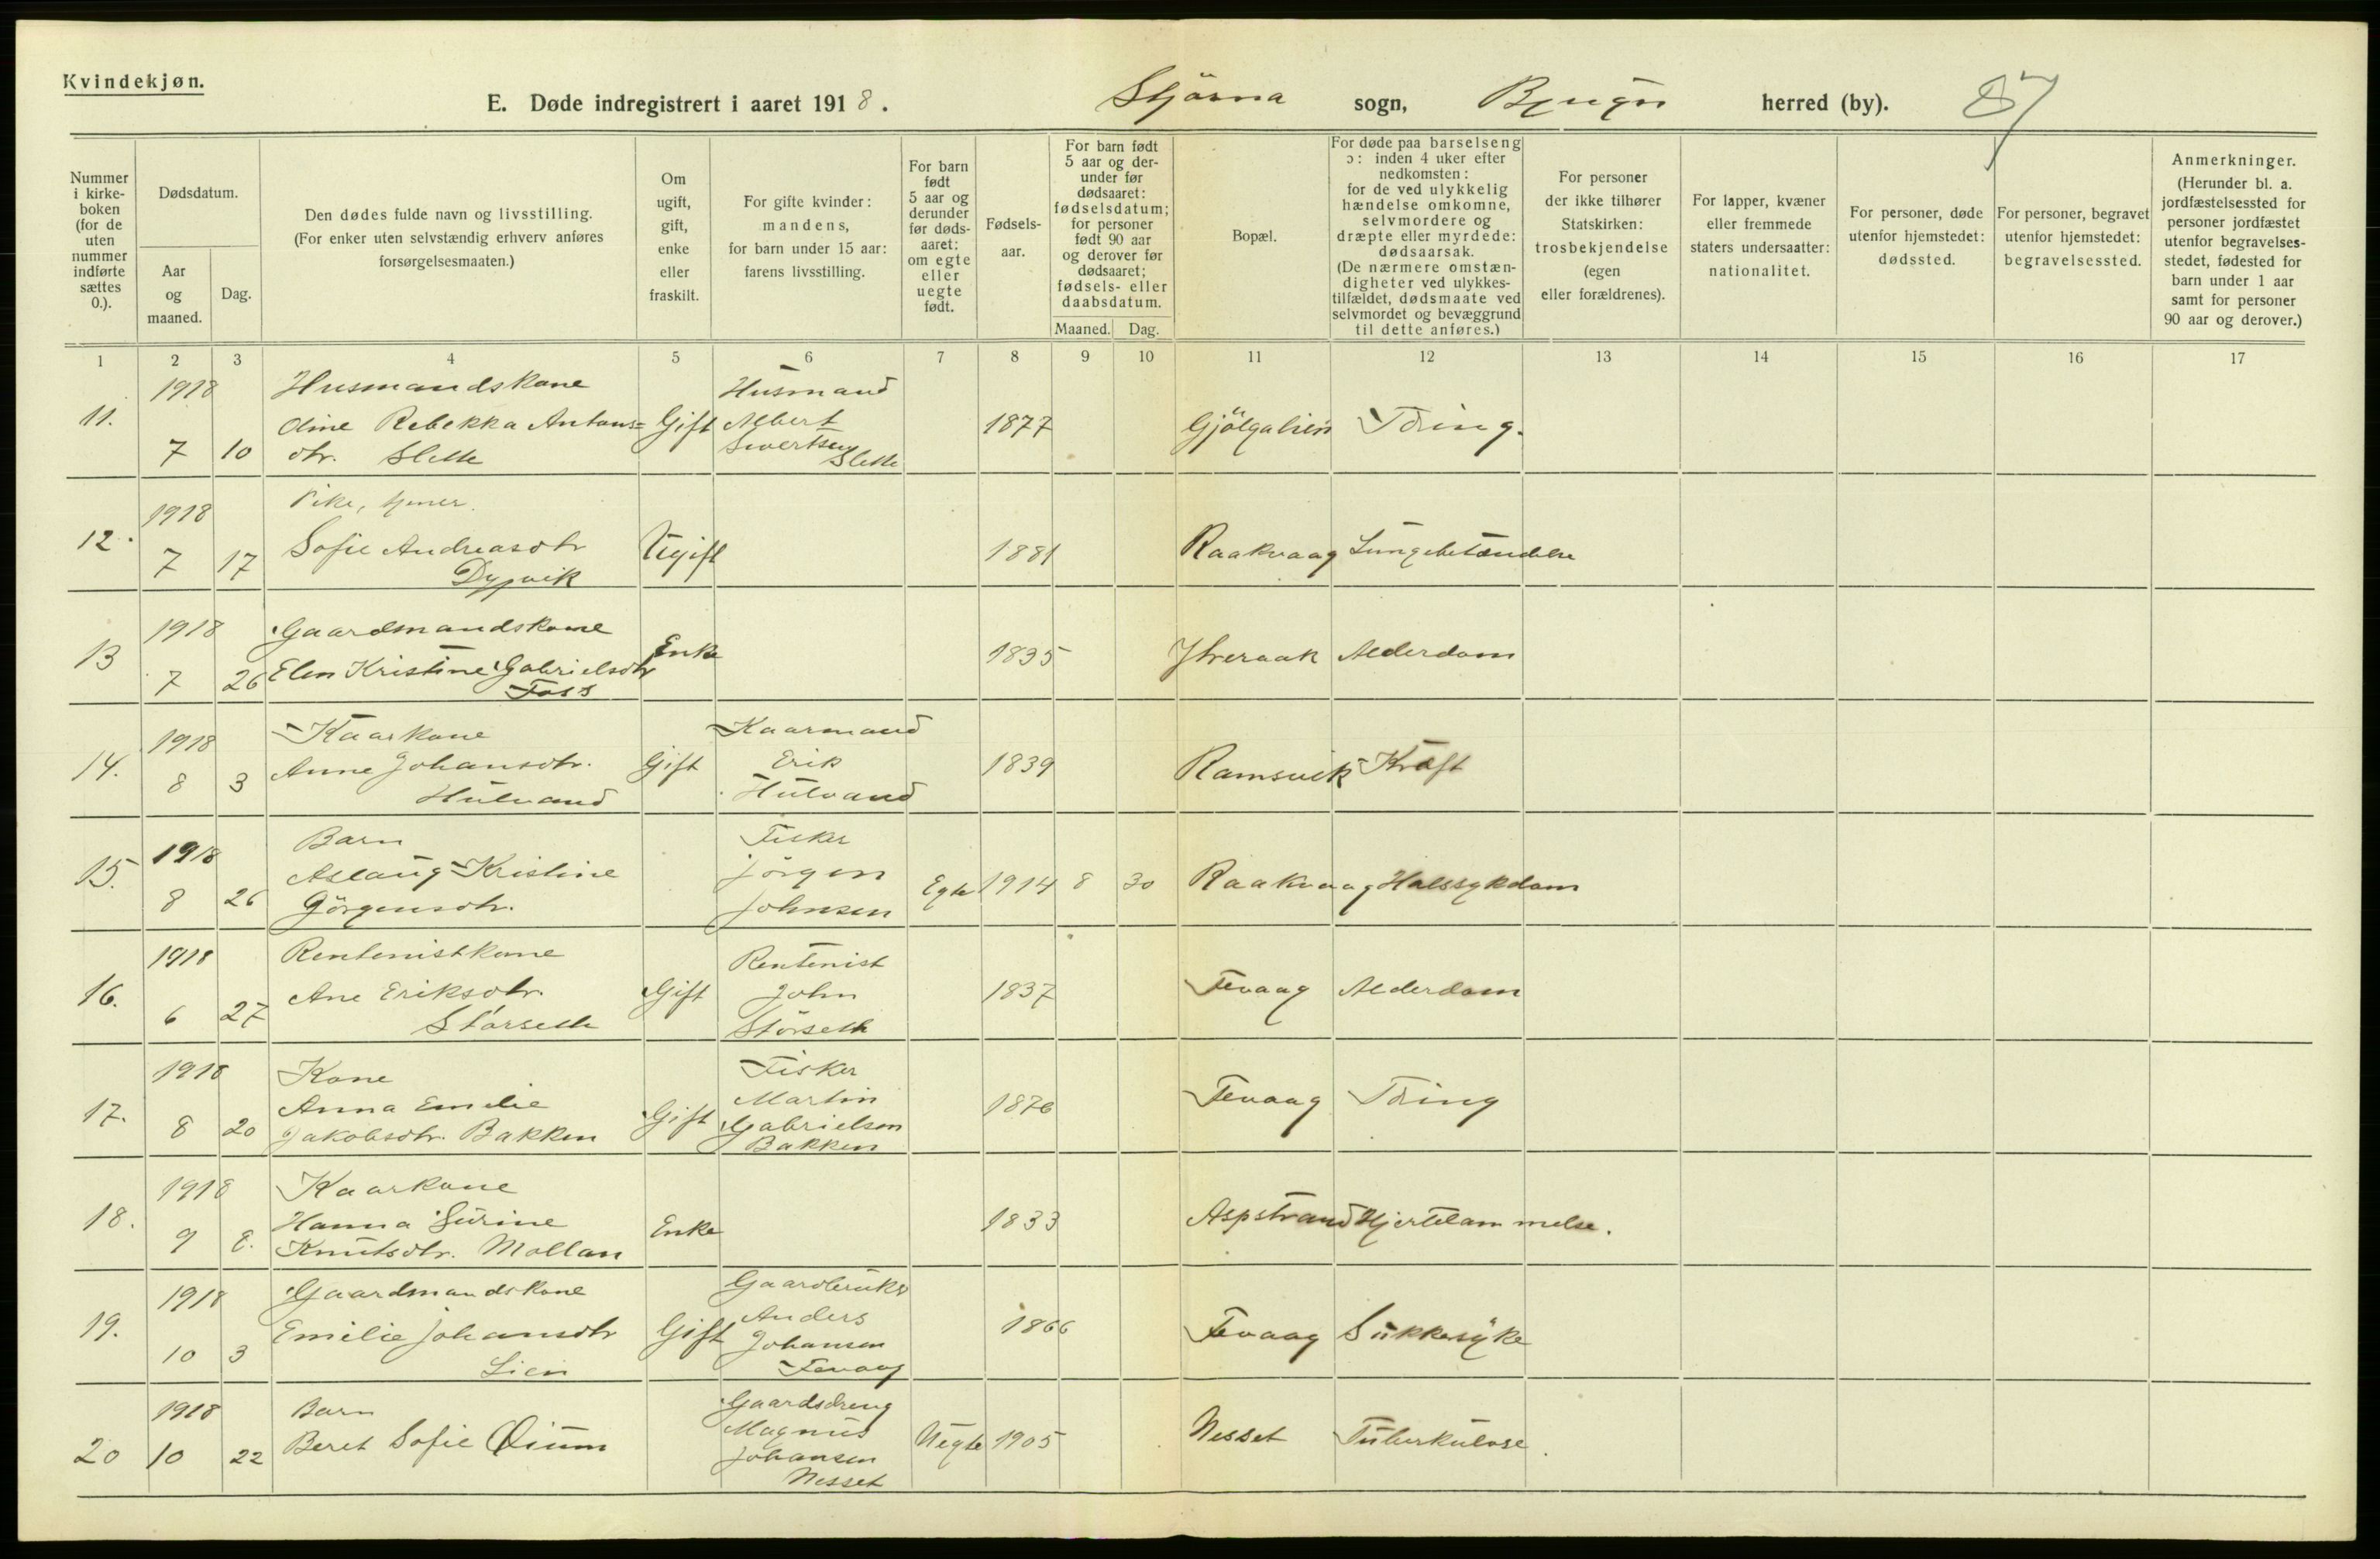 Kvindekjøn.
E. Døde indregistrert i aaret 1918.
Stjörna sogn, Bjugn herred (by). 87
Nummer i kirke-boken (for de uten nummer indførte sættes 0.).
Dødsdatum.
Aar og maaned.
Dag.
Den dødes fulde navn og livsstilling.
(For enker uten selvstændig erhverv anføres forsørgelsesmaaten.)
Om ugift, gift, enke eller fraskilt.
For gifte kvinder: mandens, for barn under 15 aar: farens livsstilling.
For barn født 5 aar og derunder før døds-aaret: om egte eller uegte født.
Fødsels-aar.
For barn født 5 aar og der-under før dødsaaret: fødselsdatum; for personer født 90 aar og derover før dødsaaret; fødsels- eller daabsdatum.
Maaned. Dag.
Bopæl.
For døde paa barselseng ɔ: inden 4 uker efter nedkomsten: for de ved ulykkelig hændelse omkomne, selvmordere og dræpte eller myrdede: dødsaarsak.
(De nærmere omstæn-digheter ved ulykkes-tilfældet, dødsmaate ved selvmordet og bevæggrund til dette anføres.)
For personer der ikke tilhører Statskirken: trosbekjendelse (egen eller forældrenes).
For lapper, kvæner eller fremmede staters undersaatter: nationalitet.
For personer, døde utenfor hjemstedet: dødssted.
For personer, begravet utenfor hjemstedet: begravelsessted.
Anmerkninger.
(Herunder bl. a. jordfæstelsessted for personer jordfæstet utenfor begravelses-stedet, fødested for barn under 1 aar samt for personer 90 aar og derover.)
1 2 3 4 5 6 7 8 9 10 11 12 13 14 15 16 17
1918 Husmandskone Husmand
11. Oline Rebekka Antons= Gift Albert 1877 Gjölgalien Täring.
7 10 dtr. Slette Sivertsen Slette
1918 Pike, tjener.
12. Sofie Andreasdtr Ugift 1881 Raakvaag Lungebetændelse
7 17 Dypvik
1918 Gaardmandskone
13 Enke 1835 Ytreraak Alderdom
7 26 Elen Kristine Gabrielsdtr
Foss
1918 Kaarkone Kaarmand
14. 8 3 Anne Johansdtr. Gift Erik 1839 Ramsvik Kräft
Hulvand Hulvand
1918 Barn Fisker
15. Aslaug Kristine Jörgen Egte 1914 8 30 Raakvaag Halssykdom
8 26 Görgensdtr. Johnsen
1918 Rentenistkone Rentenist
16. Ane Eriksdtr. Gift John 1837 Fevaag Alderdom
6 27 Störseth Störseth
1918 Kone Fisker
17. Anna Emilie Gift Martin 1876 Fevaag Täring
8 20 Jakobsdtr. Bakken Gabrielsen
Bakken
1918 Kaarkone
18. Hanna Surine Enke 1833 Aspstrand Hjertelammelse.
9 8. Knutsdtr. Mollan
1918 Gaardmandskone Gaardbruker
19. Emilie Johansdtr Gift Anders 1866 Fevaag Sukkersyke
10 3 Lien Johansen
Fevaag
1918 Barn Gaardsdreng
20 10 22 Beret Sofie Öium Magnus Uegte 1905 Nesset Tuberkulose
Johansen
Nesset